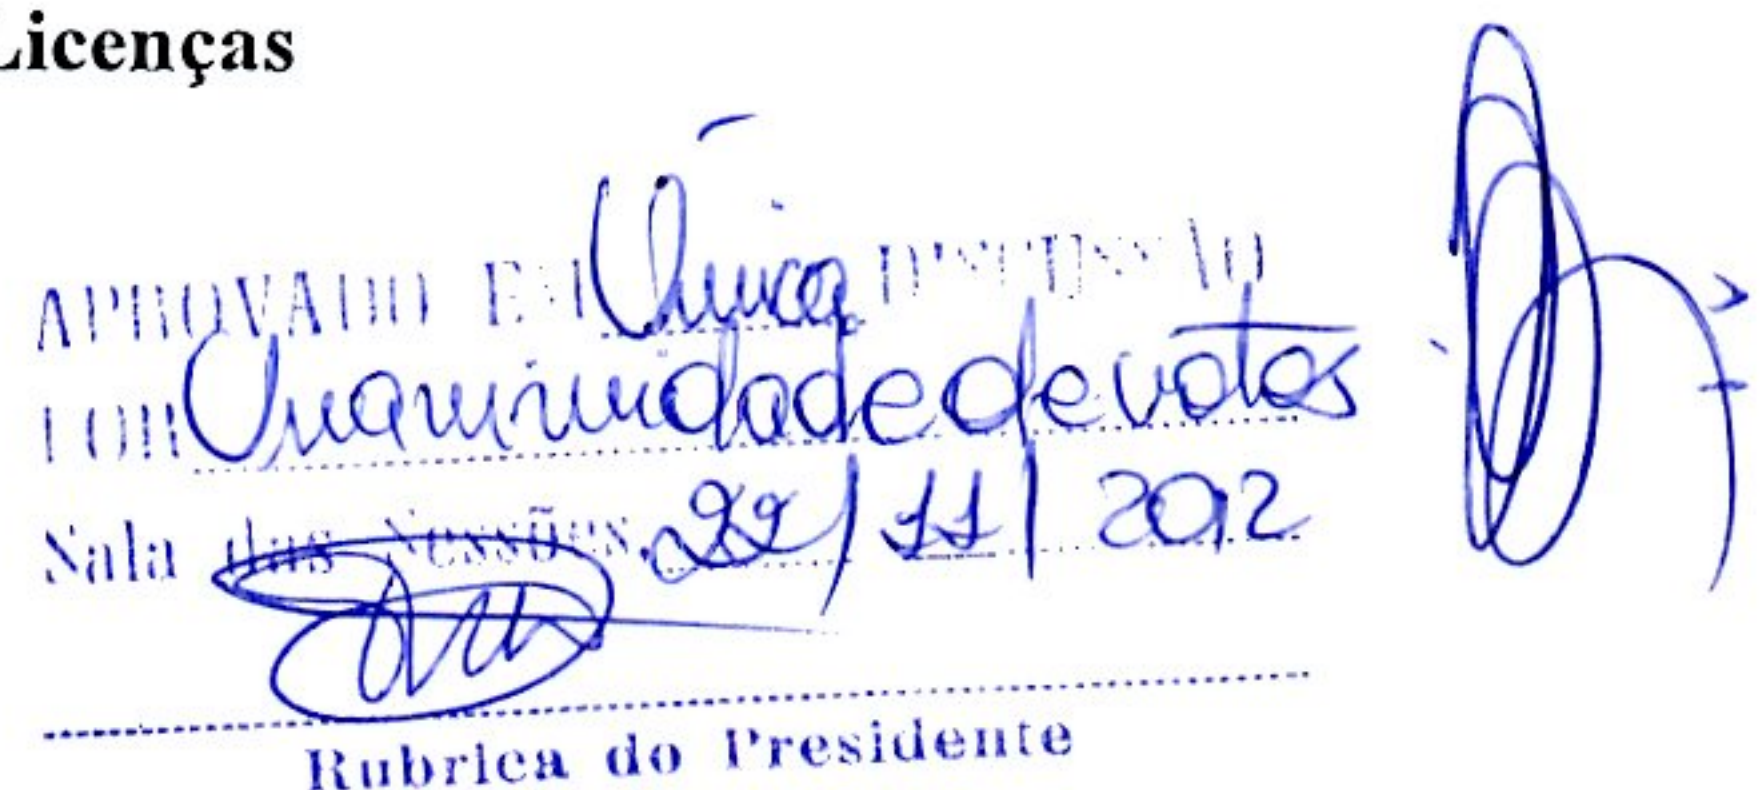 Licenças
APROVADO EM Única DISCUSSÃO
POR Unanimidade de votos
Sala das Sessões, 22/11/2012
Rubrica do Presidente